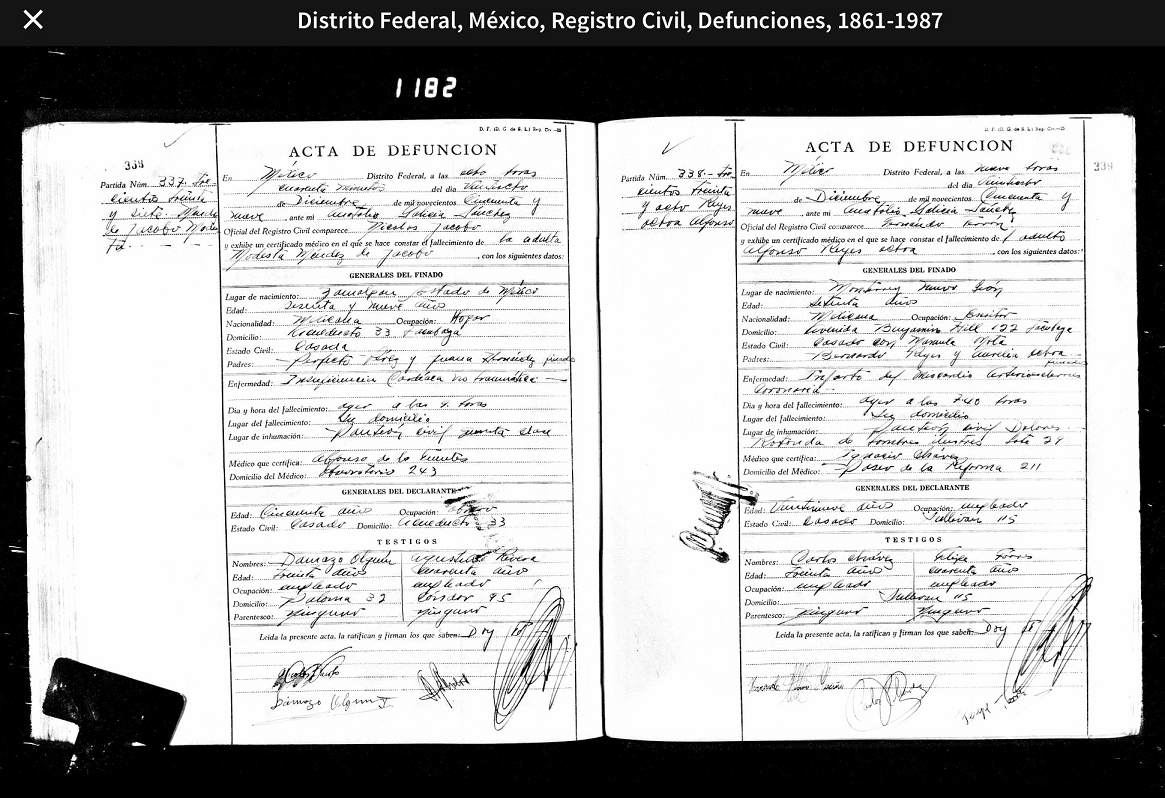 Distrito Federal, México, Registro Civil, Defunciones, 1861-1987
1182
D. F. (D. G. de S. L.) Reg. Civ.—25
ACTA DE DEFUNCION
338
Partida Núm. 337.- Tres-
cientos treinta
y siete.
de Jacobo Modes-
ta.
En México Distrito Federal, a las ocho horas
cuarenta minutos del día veintiocho
de Diciembre de mil novecientos cincuenta y
nueve, ante mí Anatolio Galicia Sánchez
Oficial del Registro Civil comparece Nicolás Jacobo
y exhibe un certificado médico en el que se hace constar el fallecimiento de la adulta
Modesta Méndez de Jacobo, con los siguientes datos:
GENERALES DEL FINADO
Lugar de nacimiento: Estado de México
Edad: sesenta y nueve años
Nacionalidad: Mexicana Ocupación: Hogar
Domicilio: Acueducto 33 Tacubaya
Estado Civil: Casada
Padres: y Juana
Enfermedad: Insuficiencia Cardiaca no traumática
Día y hora del fallecimiento: ayer a las 4 horas
Lugar del fallecimiento: Su domicilio
Lugar de inhumación: Panteón civil quinta clase
Médico que certifica: Alfonso de la Fuentes
Domicilio del Médico: Observatorio 243
GENERALES DEL DECLARANTE
Edad: Cincuenta años Ocupación: obrero
Estado Civil: Casado Domicilio: Acueducto 33
TESTIGOS
Nombres: Damazo Olguín Agustín Rivera
Edad: treinta años cuarenta años
Ocupación: empleado empleado
Domicilio: Paloma 32 Condor 95
Parentesco: ninguno ninguno
Leída la presente acta, la ratifican y firman los que saben: Doy fé
Damazo Olguin
D. F. (D. G. de S. L.) Reg. Civ.—25
ACTA DE DEFUNCION
339
Partida Núm. 338.- Tres-
cientos treinta
y ocho Reyes
Ochoa Alfonso
En México Distrito Federal, a las nueve horas
del día veintiocho
de Diciembre de mil novecientos cincuenta y
nueve, ante mí Anatolio Galicia Sánchez
Oficial del Registro Civil comparece Fernando
y exhibe un certificado médico en el que se hace constar el fallecimiento de l adulto
Alfonso Reyes Ochoa, con los siguientes datos:
GENERALES DEL FINADO
Lugar de nacimiento: Monterrey Nuevo León
Edad: Setenta años
Nacionalidad: Mexicana Ocupación: Escritor
Domicilio: Avenida Benjamín Hill 122 Tacubaya
Estado Civil: Casado con Manuela Mota
Padres: Bernardo Reyes y Aurelia Ochoa
finados
Enfermedad: Infarto del miocardio arteriosclerosis
coronaria
Día y hora del fallecimiento: ayer a las 7-40 horas
Lugar del fallecimiento: Su domicilio
Lugar de inhumación: Panteón civil Dolores
Rotonda de hombres ilustres Lote 29
Médico que certifica: Ignacio Chávez
Domicilio del Médico: Paseo de la Reforma 211
GENERALES DEL DECLARANTE
Edad: Veintinueve años Ocupación: empleado
Estado Civil: Casado Domicilio: Sullivan 115
TESTIGOS
Nombres: Carlos Chávez Felipe Torres
Edad: treinta años cuarenta años
Ocupación: empleado empleado
Domicilio: Sullivan 115
Parentesco: ninguno ninguno
Leída la presente acta, la ratifican y firman los que saben: Doy fé